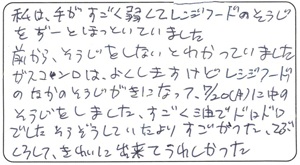 私は、手がすごく弱くてレンジフードのそうじ
をずーとほっていていました
前から、そうじをしないとわかっていました
がスコンロは、よくします けどレンジフード
のなかのそうじがきになって、7/20(月)に中の
そうじをしました、すごく油でドロドロ
でした そうぞうしていたより すごかった、
くろして、きれいに出来てうれしかった